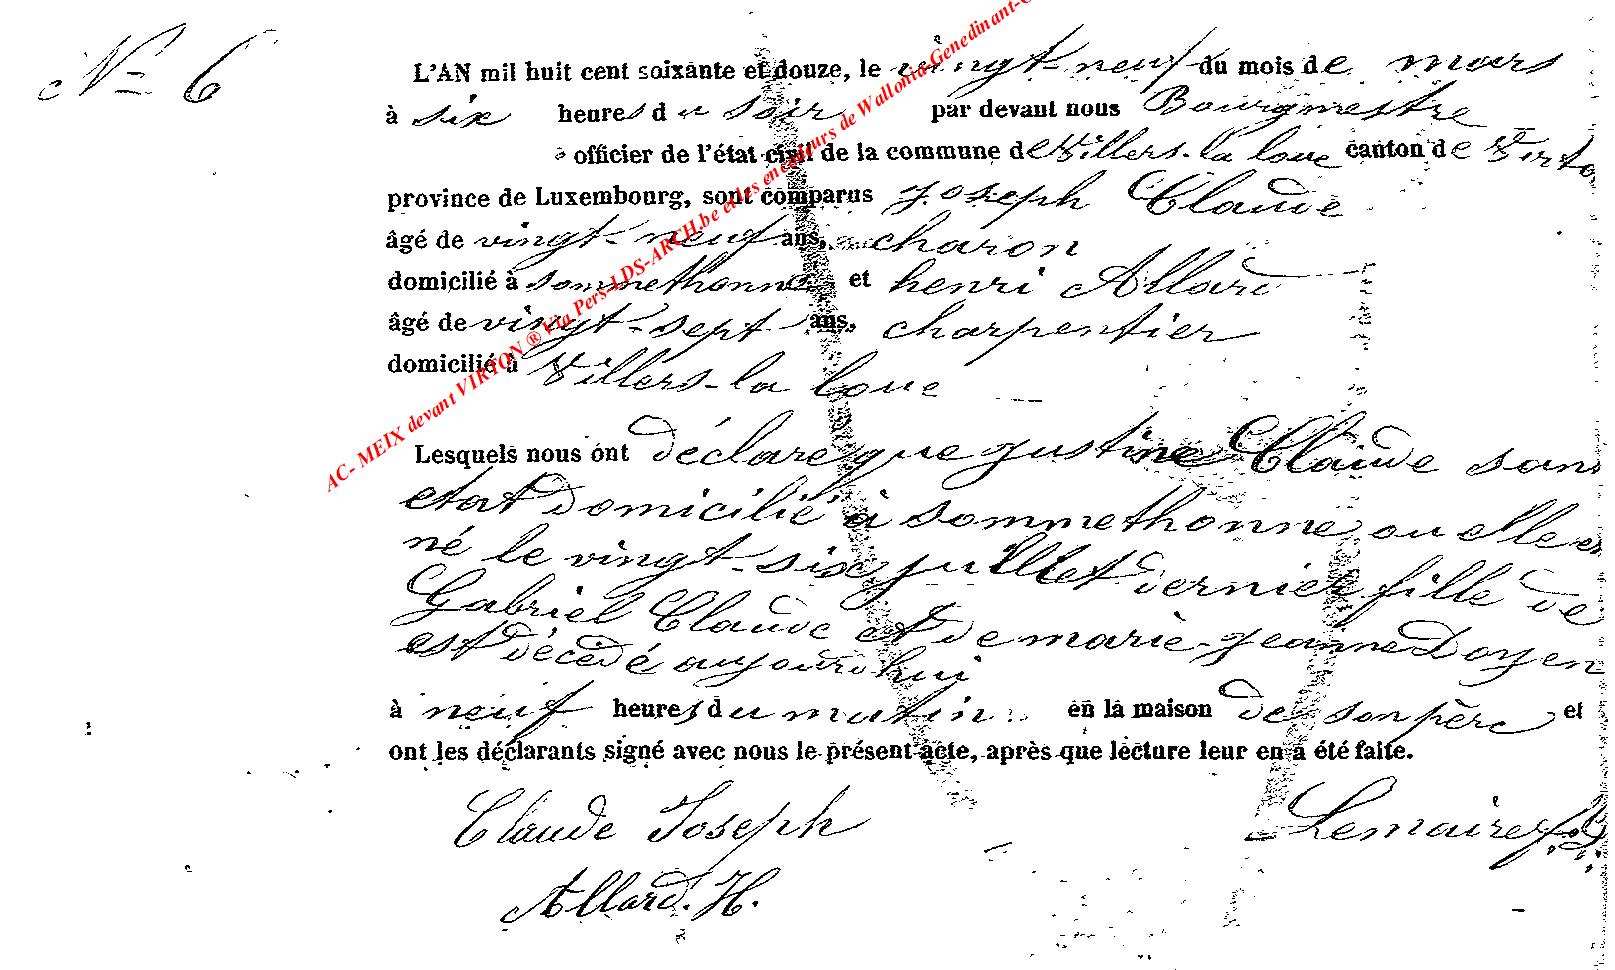 N° 6
L'AN mil huit cent soixante et douze, le vingt-neuf du mois de mars
à six heures du soir par devant nous Bourgmestre
officier de l'état civil de la commune de Villers-la loue canton de Virto
province de Luxembourg, sont comparus joseph Claude
âgé de vingt-neuf ans, charon
domicilié à sommethonne et henri Allard
âgé de vingt-sept ans, charpentier
domicilié à Villers-la loue
Lesquels nous ont déclaré que justine Claude sans
etat domicilié à sommethonne ou elle es
né le vingt-six juillet dernier fille de
Gabriel Claude et de marie-jeanne Doyen
est décédé aujourdhui
à neuf heures du matin en la maison de son père et
ont les déclarants signé avec nous le présent acte, après que lecture leur en a été faite.
Claude Joseph Lemaire
Allard. H.
AC- MEIX devant VIRTON ® Via Pers-LDS-ARCH.be et les encodeurs de Wallonia-Genedinant-